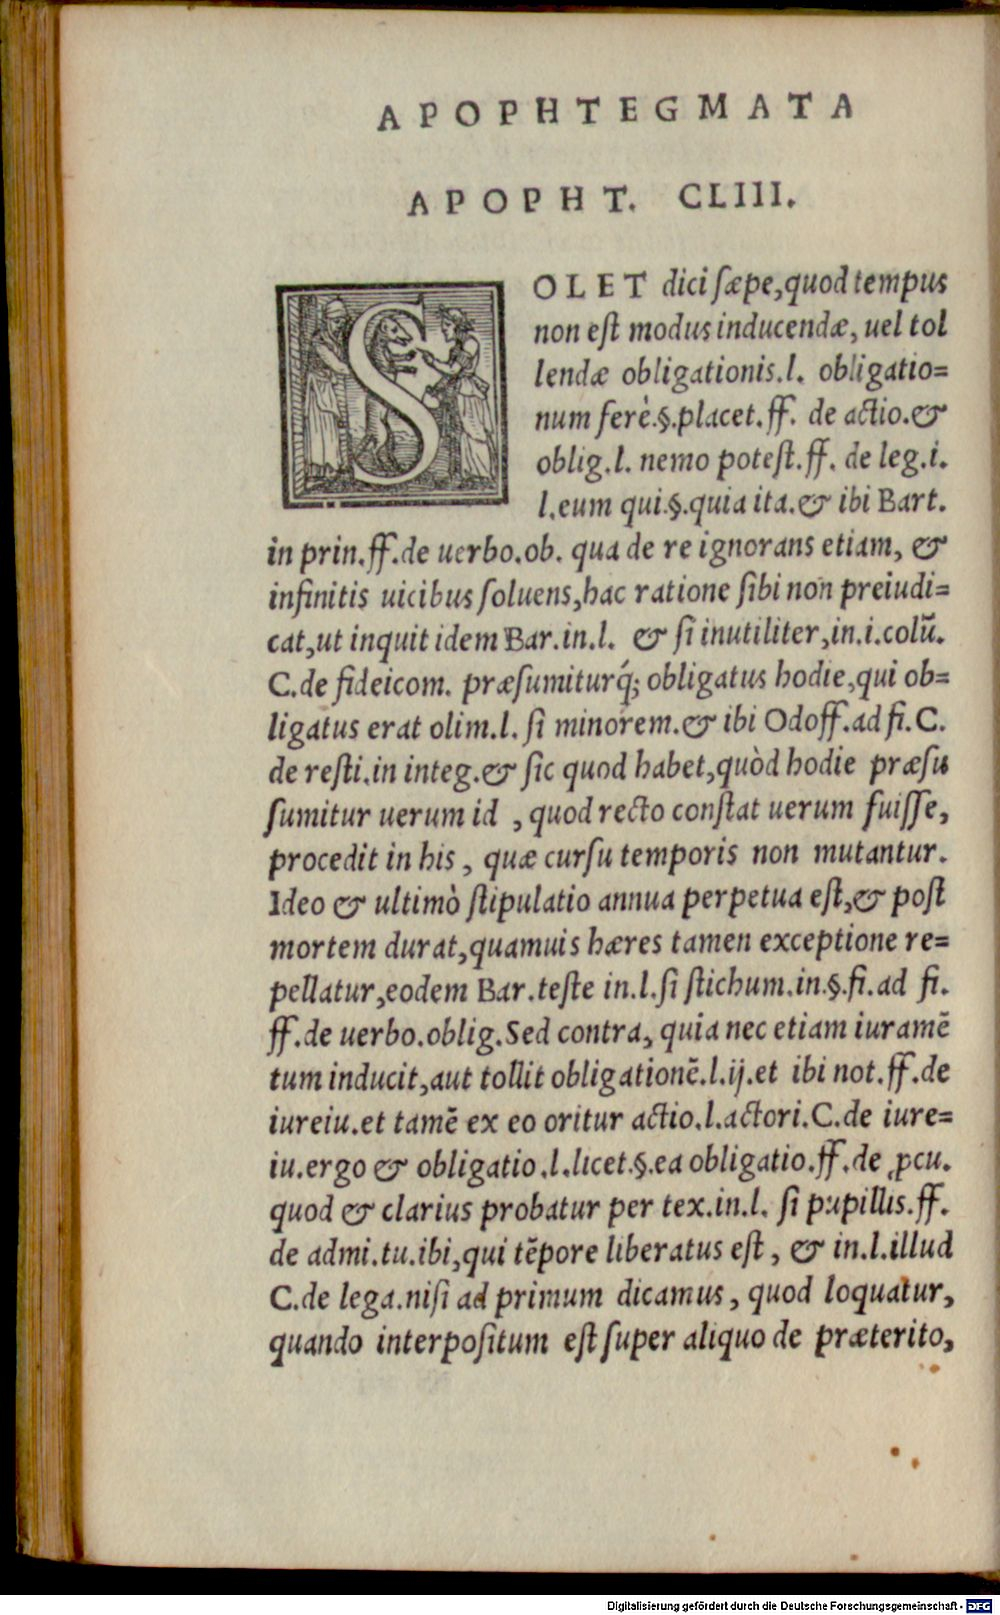 APOPHTEGMATA
APOPHT. CLIII.
SOLET dici sæpe, quod tempus
non est modus inducendæ, uel tol
lendæ obligationis.l. obligatio=
num ferè.§.placet.ff. de actio.&
oblig.l. nemo potest.ff. de leg.i.
l.eum qui.§.quia ita.& ibi Bart.
in prin.ff.de uerbo.ob. qua de re ignorans etiam, &
infinitis uicibus soluens, hac ratione sibi non preiudi=
cat, ut inquit idem Bar.in.l. & si inutiliter, in.i.colũ.
C.de fideicom. præsumiturq́; obligatus hodie, qui ob=
ligatus erat olim.l. si minorem.& ibi Odoff.ad fi.C.
de resti.in integ.& sic quod habet, quòd hodie præsu
sumitur uerum id , quod recto constat uerum fuisse,
procedit in his , quæ cursu temporis non mutantur.
Ideo & ultimò stipulatio annua perpetua est, & post
mortem durat, quamuis hæres tamen exceptione re=
pellatur, eodem Bar.teste in.l.si stichum.in.§.fi.ad fi.
ff.de uerbo.oblig.Sed contra, quia nec etiam iuramẽ
tum inducit, aut tollit obligationẽ.l.ij.et ibi not.ff.de
iureiu.et tamẽ ex eo oritur actio.l.actori.C.de iure=
iu.ergo & obligatio.l.licet.§.ea obligatio.ff.de ꝓcu.
quod & clarius probatur per tex.in.l. si pupillis.ff.
de admi.tu.ibi, qui tẽpore liberatus est , & in.l.illud
C.de lega.nisi ad primum dicamus , quod loquatur,
quando interpositum est super aliquo de præterito,
Digitalisierung gefördert durch die Deutsche Forschungsgemeinschaft - DFG